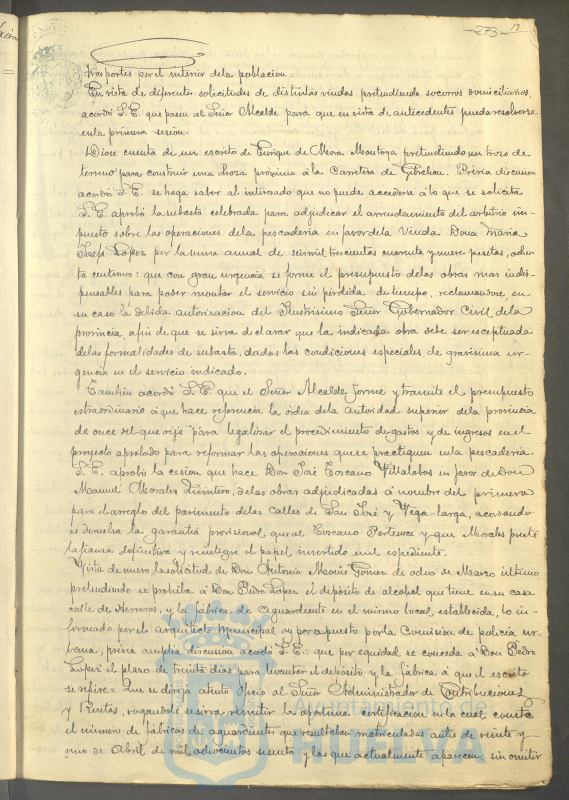 -273-
13
trasportes por el interior de la poblacion.
En vista de diferentes solicitudes de distintas viudas pretendiendo socorros domiciliarios,
acordó S.E. que pasen al Señor Alcalde para que en vista de antecedentes pueda resolverse
en la primera sesion.
Diose cuenta de un escrito de Enrique de Mora Montoya pretendiendo un trozo de
terreno para construir una choza próximo á la Carretera de Gibraleon. Prévia discusion
acordó S.E. se haga saber al interesado que no puede accederse á lo que se solicita
S.E. aprobó la subasta celebrada para adjudicar el arrendamiento del arbitrio im-
puesto sobre las operaciones de la pescadería en favor de la Viuda Doña María
Josefa Lopez por la suma anual de seis mil trescientas cuarenta y nueve pesetas, ochen
ta centimos: que con gran urgencia se forme el presupuesto de las obras mas indis-
pensables para poder montar el servicio sin pérdida de tiempo, reclamandose, en
su caso la debida autorizacion del Ilustrisimo Señor Gobernador Civil de la
provincia, afin de que se sirva declarar que la indicada obra debe ser esceptuada
de las formalidades de subasta, dadas las condiciones especiales de gravisima ur-
gencia en el servicio indicado.
Tambien acordó S.E. que el Señor Alcalde forme y tramite el presupuesto
estraordinario á que hace referencia la órden de la Autoridad superior de la provincia
de once del que rije para legalizar el procedimiento de gastos y de ingresos en el
proyecto aprobado para reformar las operaciones que se practiquen en la pescadería.
S.E. aprobó la cesion que hace Don José Toscano Villalobos en favor de Don
Manuel Morales Quintero, de las obras adjudicadas á nombre del primero
para el arreglo del pavimento de las calles de San José y Vega-larga, acordando
se devuelva la garantía provisional que al Toscano Pertenece y que Morales preste
la fianza definitiva y reintegre el papel invertido en el espediente.
Vista de nuevo la solicitud de Don Antonio Gomez de ocho de Marzo último
pretendiendo se prohiba á Don Pedro Lopez el depósito de alcohol que tiene en su casa
calle de Herreros, y la fábrica de aguardiente en el mismo local establecida, lo in-
formado por el Arquitecto Municipal y propuesto por la Comision de policia ur-
bana, prévia amplia discusion acordó S.E.: que por equidad se conceda á Don Pedro
Lopez el plazo de treinta dias para levantar el depósito y la fábrica á que el escrito
se refiere: Que se dirija atento Oficio al Señor Administrador de Contribuciones
y Rentas, rogandole se sirva remitir la oportuna certificacion en la cual conste
el número de fábricas de aguardientes que resultaban matriculadas antes de veinte y
uno de Abril de mil ochocientos sesenta y las que actualmente aparecen, sin omitir
Ayuntamiento de
HUELVA